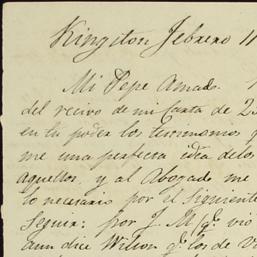 Kingston Febrero 11
Mi Pepe Amado.
del recivo de mi Carta de 2
en tu poder los testimonios q
me una perfecta idea de los
aquellos, y al Abogado me
lo necesario por el siguiente
Seguia: por J. M. qe vio
aun dice Wilson qe los de V